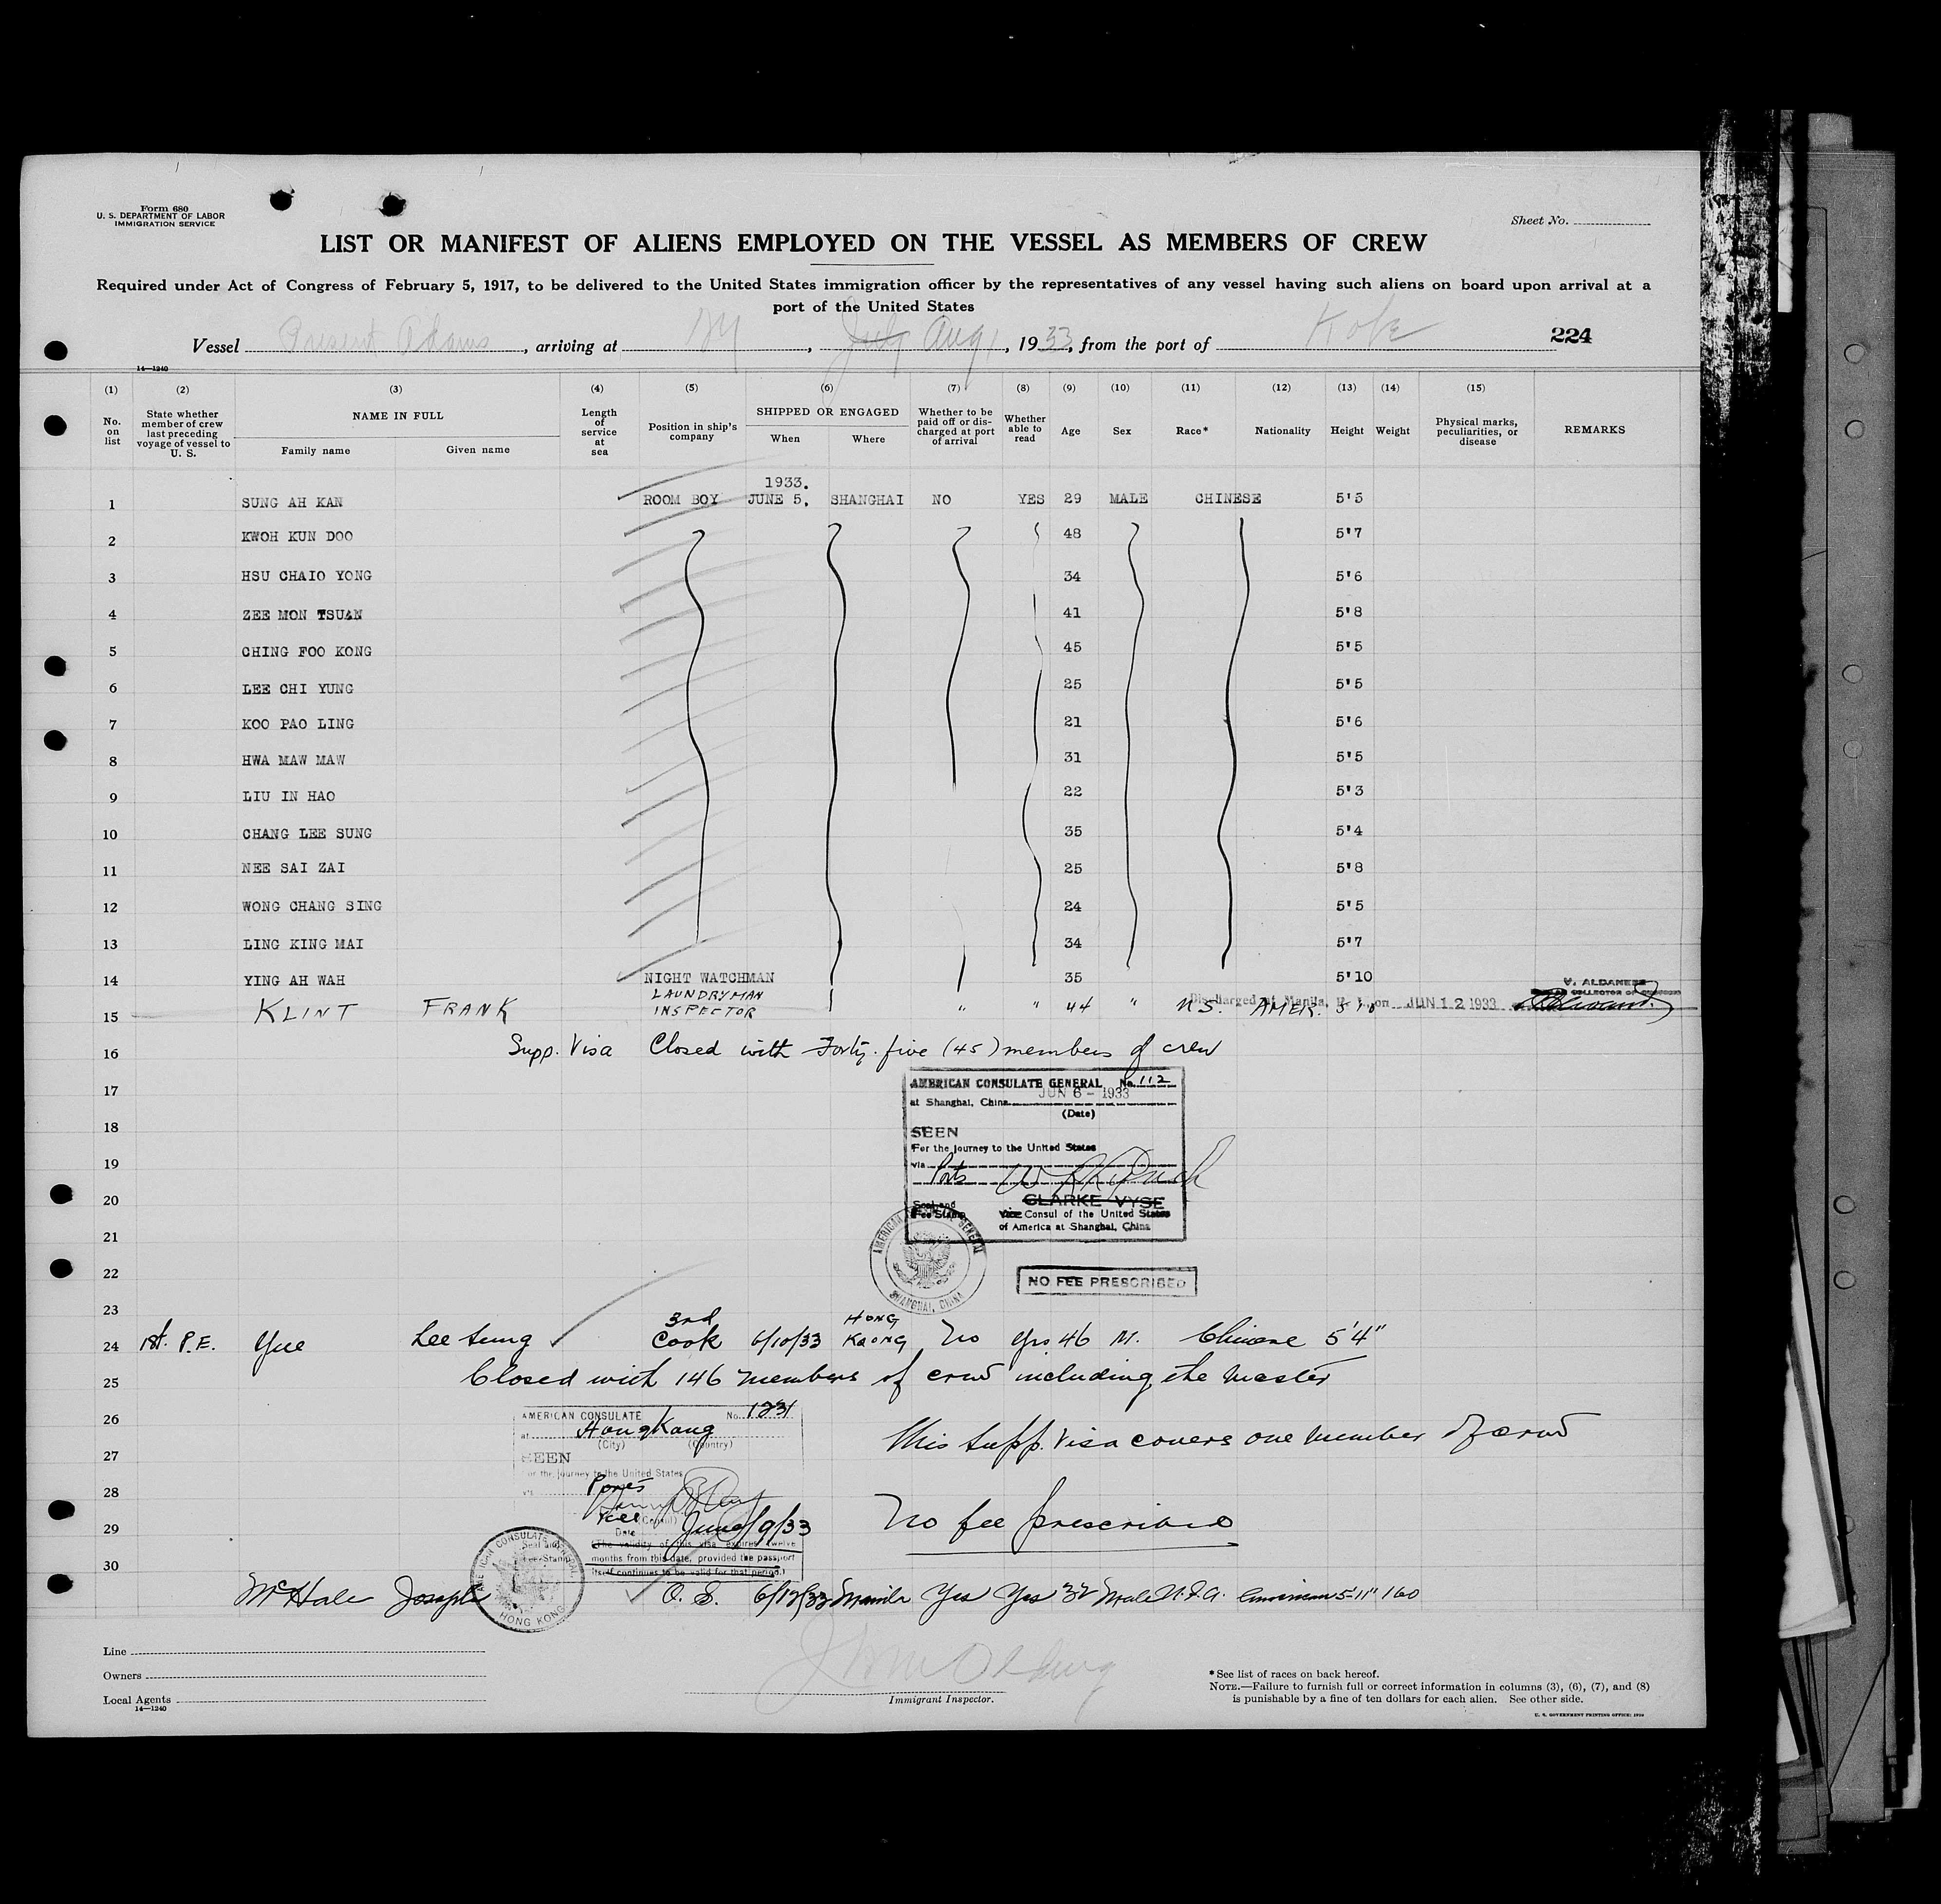 Form 680
U. S. DEPARTMENT OF LABOR
IMMIGRATION SERVICE
Sheet No.
LIST OR MANIFEST OF ALIENS EMPLOYED ON THE VESSEL AS MEMBERS OF CREW
Required under Act of Congress of February 5, 1917, to be delivered to the United States immigration officer by the representatives of any vessel having such aliens on board upon arrival at a
port of the United States
Vessel Present Adams, arriving at NY, July Aug 1, 1933, from the port of Kobe 224
14—1240
(1) (2) (3) (4) (5) (6) (7) (8) (9) (10) (11) (12) (13) (14) (15)
No. on list
State whether member of crew last preceding voyage of vessel to U. S.
NAME IN FULL
Family name
Given name
Length of service at sea
Position in ship's company
SHIPPED OR ENGAGED
When
Where
Whether to be paid off or discharged at port of arrival
Whether able to read
Age
Sex
Race*
Nationality
Height
Weight
Physical marks, peculiarities, or disease
REMARKS
1933.
1 SUNG AH KAN ROOM BOY JUNE 5, SHANGHAI NO YES 29 MALE CHINESE 5'5
2 KWOH KUN DOO 48 5'7
3 HSU CHAIO YONG 34 5'6
4 ZEE MON TSUAN 41 5'8
5 CHING FOO KONG 45 5'5
6 LEE CHI YUNG 25 5'5
7 KOO PAO LING 21 5'6
8 HWA MAW MAW 31 5'5
9 LIU IN HAO 22 5'3
10 CHANG LEE SUNG 35 5'4
11 NEE SAI ZAI 25 5'8
12 WONG CHANG SING 24 5'5
13 LING KING MAI 34 5'7
14 YING AH WAH NIGHT WATCHMAN 35 5'10
V. ALDANESE
COLLECTOR OF CUSTOMS
15 KLINT FRANK LAUNDRYMAN INSPECTOR " " 44 " U.S. AMER. 5'10
Discharged at Manila, P. I., on JUN 12 1933
16 Supp. Visa Closed with Forty-five (45) members of crew
17
18
19
20
21
22
23
AMERICAN CONSULATE GENERAL No. 112
at Shanghai, China JUN 6 - 1933
(Date)
SEEN
For the journey to the United States
via Ports
CLARKE VYSE
Seal and
Fee Stamp
Vice Consul of the United States
of America at Shanghai, China
AMERICAN CONSULATE GENERAL
SHANGHAI, CHINA
NO FEE PRESCRIBED
24 1st. P.E. Yue Lee Sung 3rd Cook 6/10/33 HONG KONG No Yes 46 M. Chinese 5'4"
25 Closed with 146 members of crew including the Master
26
27
28
29
30
AMERICAN CONSULATE No. 1231
at HongKong
(City) (Country)
SEEN
For the journey to the United States
via Ports
Vice (Consul)
Date June/9/33
Seal and
Fee Stamp
(The validity of this visa expires twelve
months from this date, provided the passport
itself continues to be valid for that period.)
AMERICAN CONSULATE GENERAL
HONG KONG
This Supp. Visa covers one member of crew
No fee prescribed
McHale Joseph O. S. 6/12/33 Manila Yes Yes 32 Male U.S.A. American 5'11" 160
Line
Owners
Local Agents
14—1240
Immigrant Inspector.
* See list of races on back hereof.
NOTE.—Failure to furnish full or correct information in columns (3), (6), (7), and (8)
is punishable by a fine of ten dollars for each alien. See other side.
U. S. GOVERNMENT PRINTING OFFICE: 1930